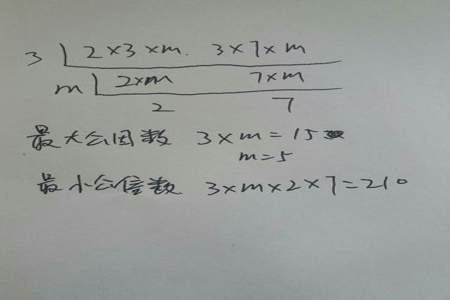 3 2×3×m. 3×7×m
m 2×m 7×m
2 7
最大公因数 3×m=15
m=5
最小公倍数 3×m×2×7=210